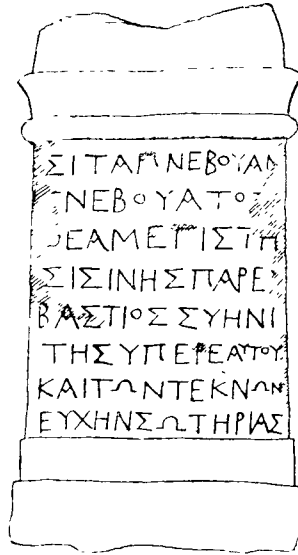 ΣΙΤΑΡΝΕΒΟΥΑΝ
ΝΕΒΟΥΑΤΟΣ
ΘΕΑΜΕΓΙΣΤΗ
ΣΙΣΙΝΗΣΠΑΡΕ
ΒΑΣΤΙΟΣΣΥΗΝΙ
ΤΗΣΥΠΕΡΕΑΥΤΟΥ
ΚΑΙΤΩΝΤΕΚΝΩΝ
ΕΥΧΗΝΣΩΤΗΡΙΑΣ